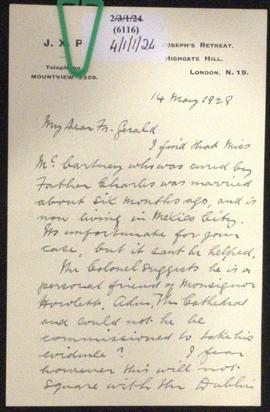 2/3/1/24
(6116)
4/1/1/24
J. X. P
JOSEPH'S RETREAT,
HIGHGATE HILL,
LONDON, N. 19.
Telephone
MOUNTVIEW
14 May 1928
My Dear Fr. Gerald
I find that Miss
McCartney who was cured by
Father Charles was married
about six months ago, and is
now living in Mexico City.
Its unfortunate for your
case, but it cant be helped.
The Colonel suggests he is a
personal friend of Monsignor
Howlett, Adm, The Cathedral
and could not he be
commissioned to take his
evidence? I fear
however this will not
square with the Dublin